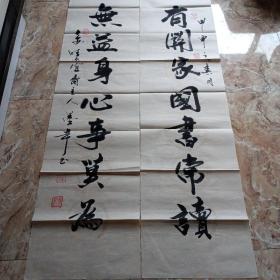 有關家國書常讀
甲申之春月
無益身心事莫為